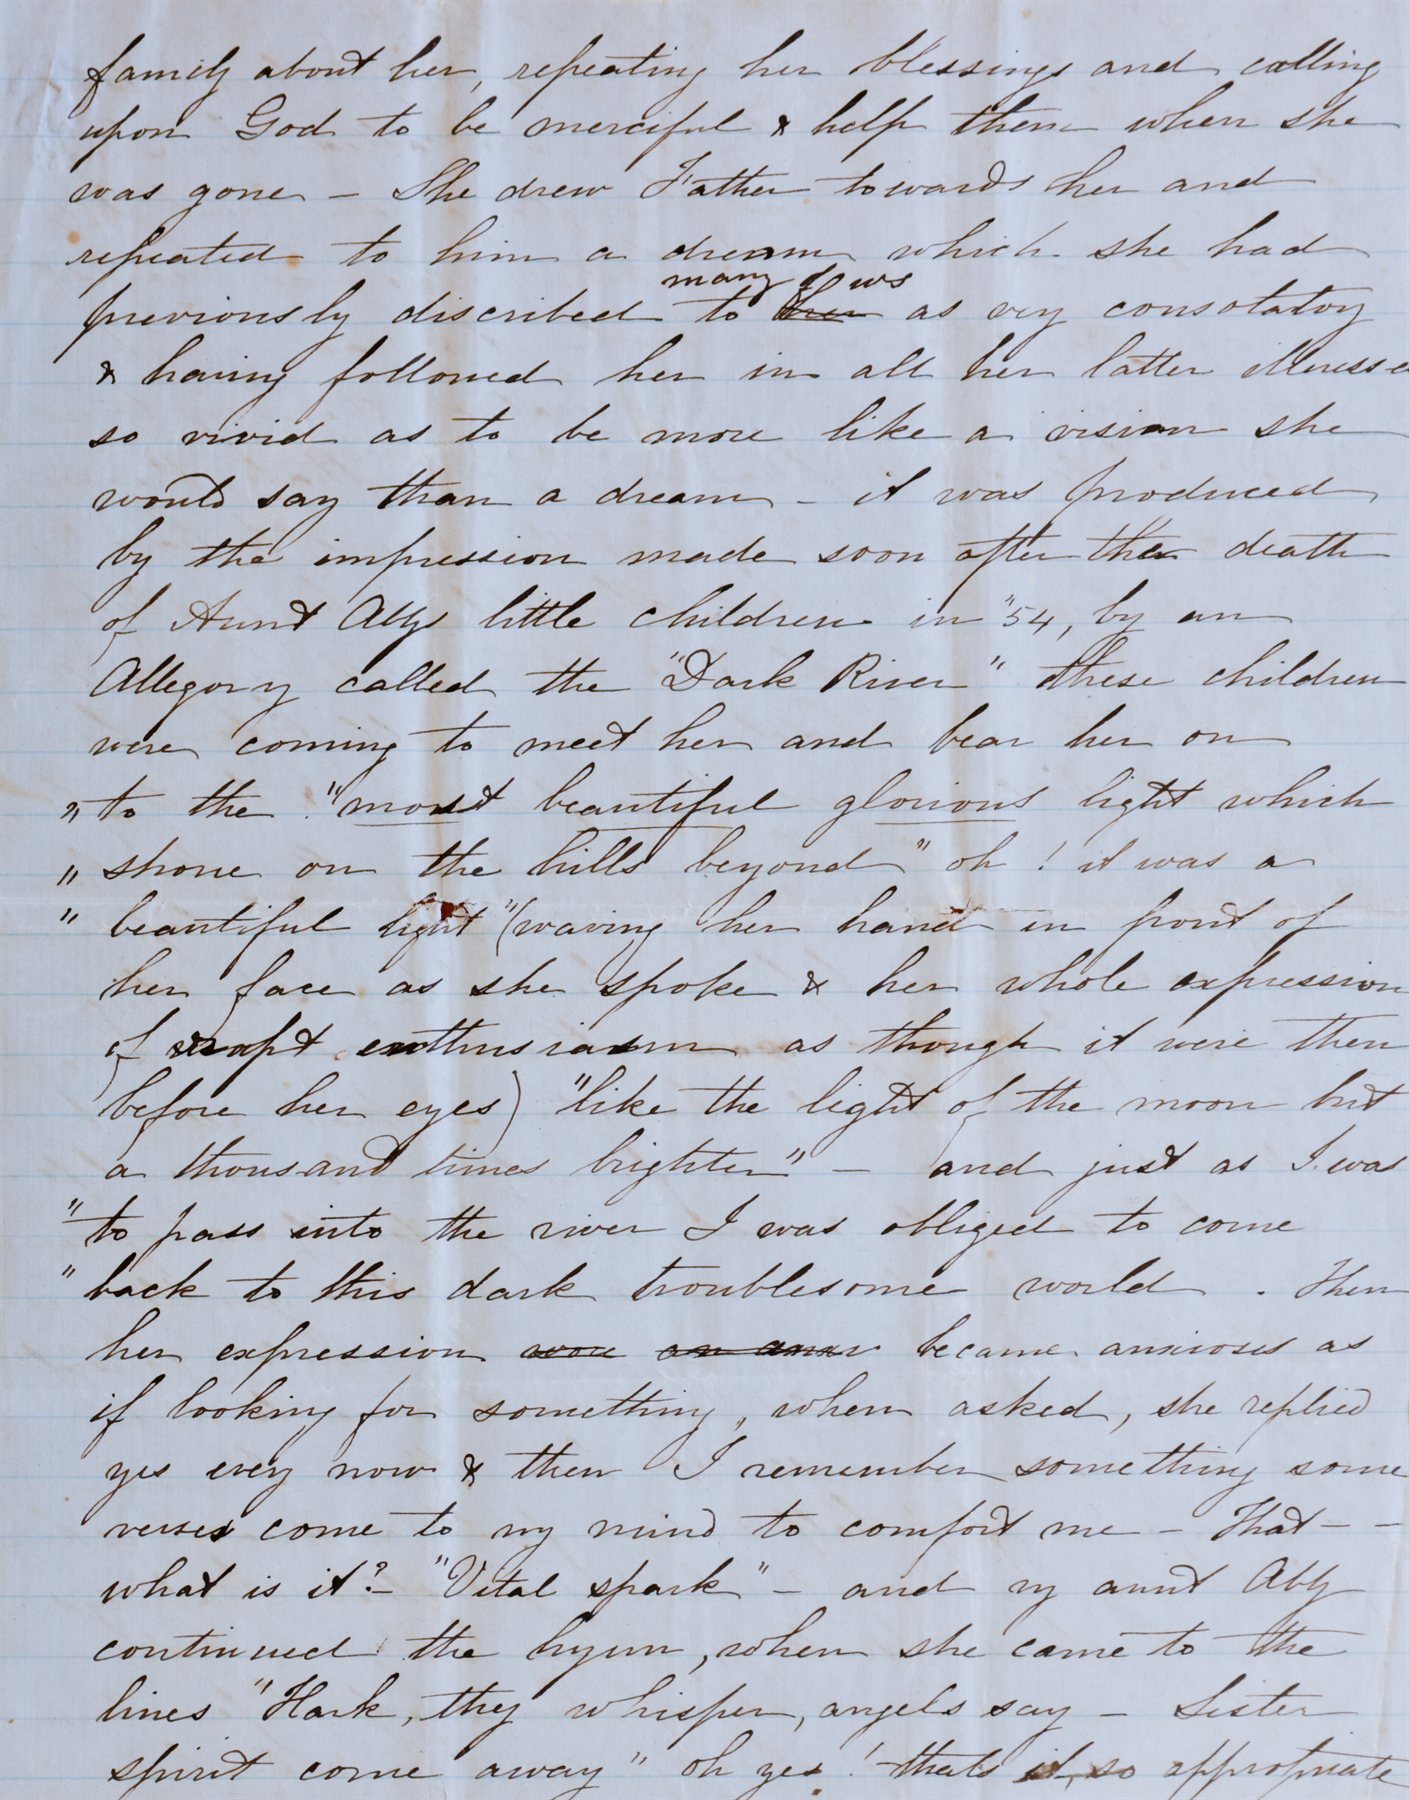 family about her, repeating her blessings and calling
upon God to be merciful & help them when she
was gone – She drew Father towards her and
repeated to him a dream which she had
many of us
previously discribed to her as very consolatory
& having followed her in all her latter illnesses
so vivid as to be more like a vision she
would say than a dream – it was produced
by the impression made soon after the death
of Aunt Abbys little children in "54, by an
Allegory called the "Dark River" these children
were coming to meet her and bear her on
" to the "most beautiful glorious light which
" shone on the hills beyond" oh! it was a
" beautiful light" (waving her hand in front of
her face as she spoke & her whole expression
of rapt enthusiasm as though it were then
before her eyes) "like the light of the moon but
a thousand times brighter" – and just as I was
" to pass into the river I was obliged to come
" back to this dark troublesome world. Then
her expression wore an anx became anxioses as
if looking for something, when asked, she replied
yes every now & then I remember something some
verses come to my mind to comfort me – That – –
what is it? – "Vital spark" – and my aunt Abby
continued the hymn, when she came to the
lines "Hark, they whisper, angels say – Sister
spirit come away" oh yes! thats it, so appropriate